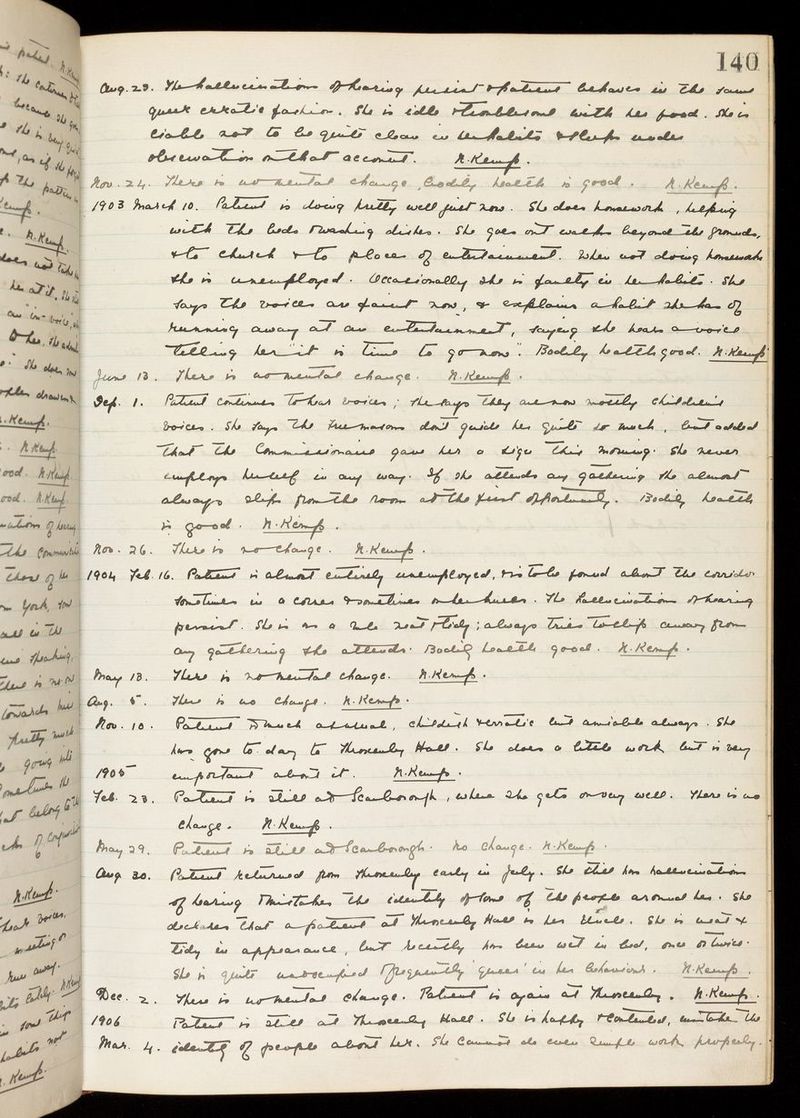 140
Aug. 29. The hallucinations of hearing persist & patient behaves in the same
queer erratic fashion. She is idle & troublesome with her food. She is
liable not to be quite clean in her habits & sleeps under
observation on that account. N. Kemp.
Nov. 24. There is no mental change, bodily health is good. N. Kemp.
1903 March 10. Patient is doing pretty well just now. She does housework, helping
with the beds & washing dishes. She goes out walks beyond the grounds,
& to church & to places of entertainment. When not doing housework
she is unemployed. Occasionally she is faulty in her habits. She
says the voices are faint now, & explains a habit she has of
running away at an entertainment, saying she hears a voice
telling her "it is time to go now". Bodily health good. N. Kemp
June 13. There is no mental change. N. Kemp.
Sep. 1. Patient continues to hear voices; she says they are now mostly children's
voices. She says the Freemasons don't guide her quite so much, but added
that the Commissionaire gave her a sign this morning. She never
employs herself in any way. If she attends any gathering she almost
always slips from the room at the first opportunity. Bodily health
is good. N. Kemp.
Nov. 26. There is no change. N. Kemp.
1904 Feb. 16. Patient is almost entirely unemployed, & is to be found about the corridor
sometimes in a corner & sometimes on her knees. The hallucinations of hearing
persist. She is as a rule neat & tidy; always tries to slip away from
any gathering she attends. Bodily health good. N. Kemp.
May 13. There is no mental change. N. Kemp.
Aug. 5. There is no change. N. Kemp.
Nov. 10. Patient is much as usual, childish & erratic but amiable always. She
has gone to day to Throxenby Hall. She does a little work but is very
1905 important about it. N. Kemp.
Feb. 23. Patient is still at Scarborough, where she gets on very well. There is no
change. N. Kemp.
May 29. Patient is still at Scarborough. No change. N. Kemp.
Aug 30. Patient returned from Throxenby early in July. She still has hallucinations
of hearing & mistakes the identity of some of the people around her. She
declares that a patient at Throxenby Hall is her Uncle. She is neat &
tidy in appearance, but recently has been wet in bed, once or twice.
She is quite unoccupied & frequently 'queer' in her behaviour. N. Kemp.
Dec. 2. There is no mental change. Patient is again at Throxenby. N. Kemp.
1906 Patient is still at Throxenby Hall. She is happy & contented, mistakes the
Mar. 4. identity of people about her. She cannot do even simple work properly.